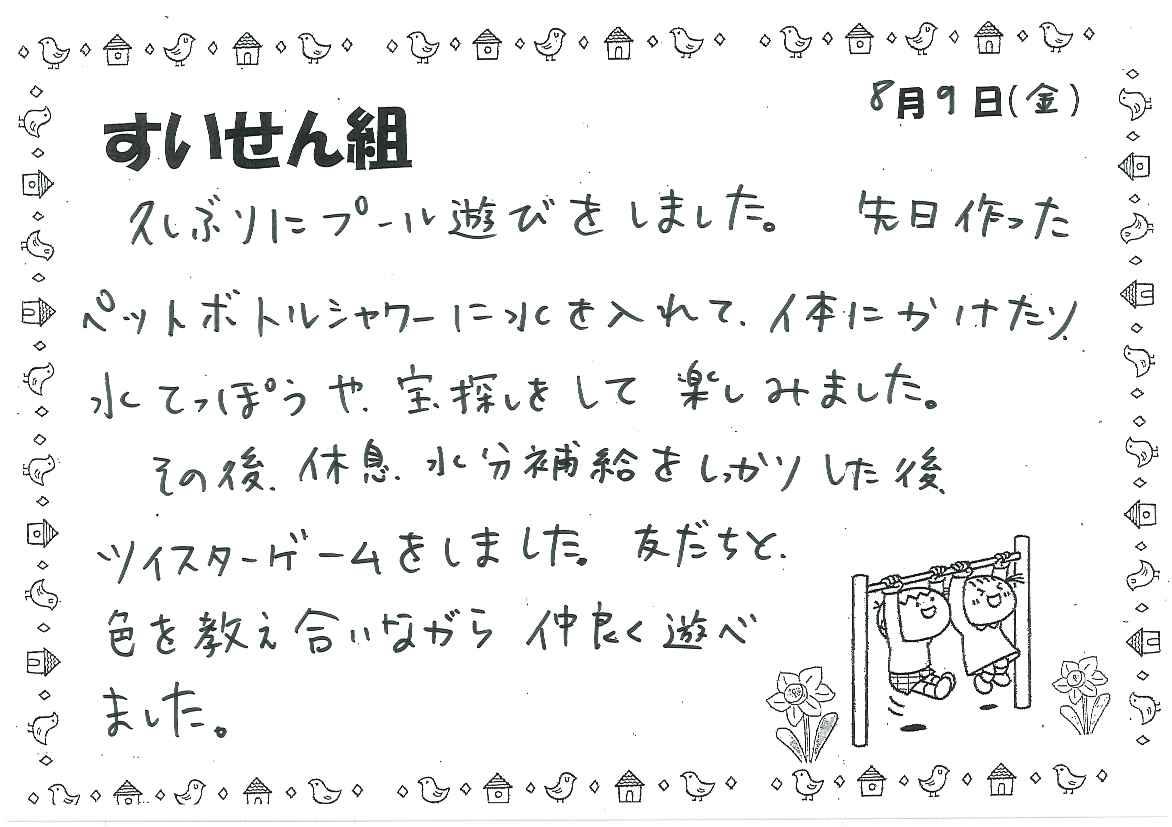 8月9日(金)
すいせん組
久しぶりにプール遊びをしました。 先日作った
ペットボトルシャワーに水を入れて、体にかけたり、
水てっぽうや、宝探しをして楽しみました。
その後、休息、水分補給をしっかりした後、
ツイスターゲームをしました。友だちと、
色を教え合いながら仲良く遊べ
ました。